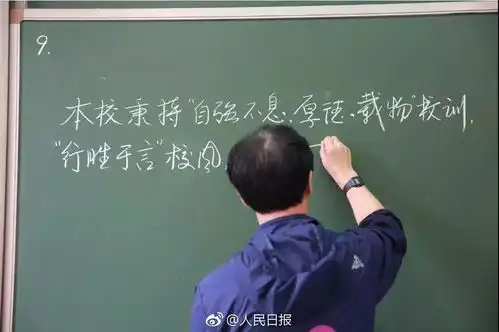 9.
本校秉持“自强不息、厚德、载物”校训，
“行胜于言”校风，
@人民日报